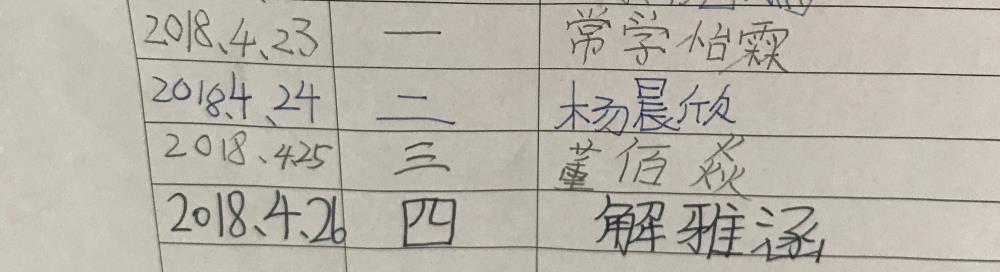 2018、4、23 一 常学怡霖
2018、4、24 二 杨晨欣
2018、4.25 三 董佰焱
2018、4、26 四 解雅涵